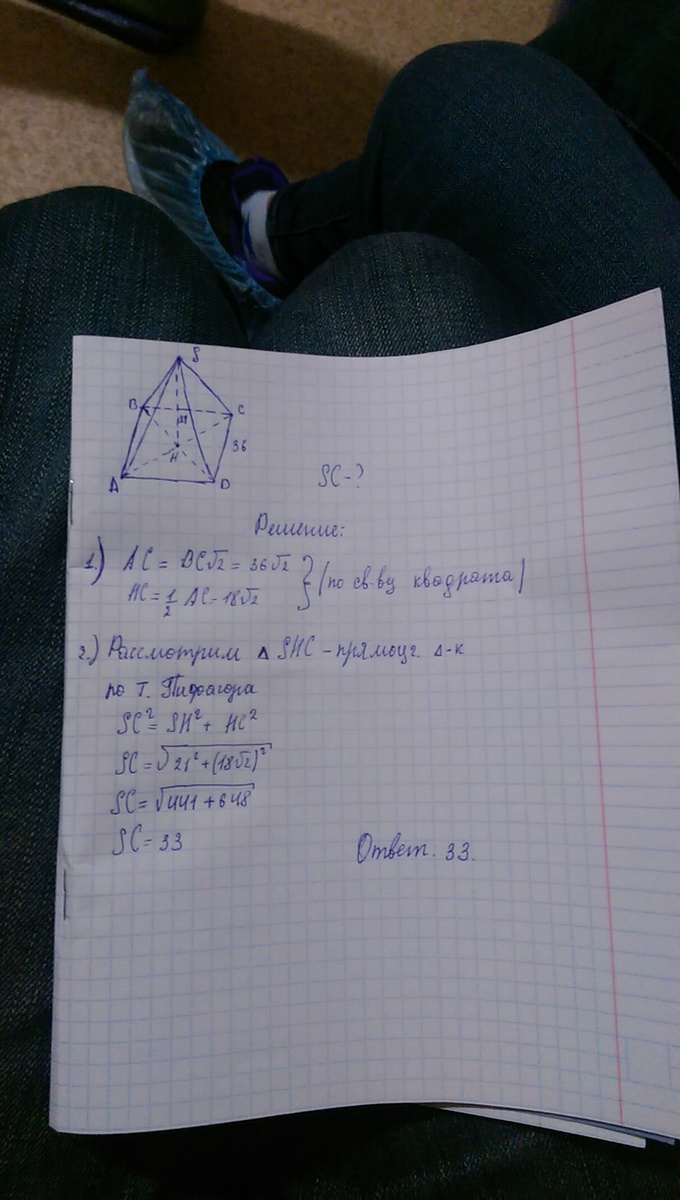 S
B
C
21
36
H
A
D
SC-?
Решение:
1.) AC = DC√2 = 36√2
HC = 1/2 AC = 18√2 } (по св-ву квадрата)
2.) Рассмотрим Δ SHC - прямоуг. Δ-к
по Т. Пифагора
SC² = SH² + HC²
SC = √21² + (18√2)²
SC = √441 + 648
SC = 33
Ответ. 33.